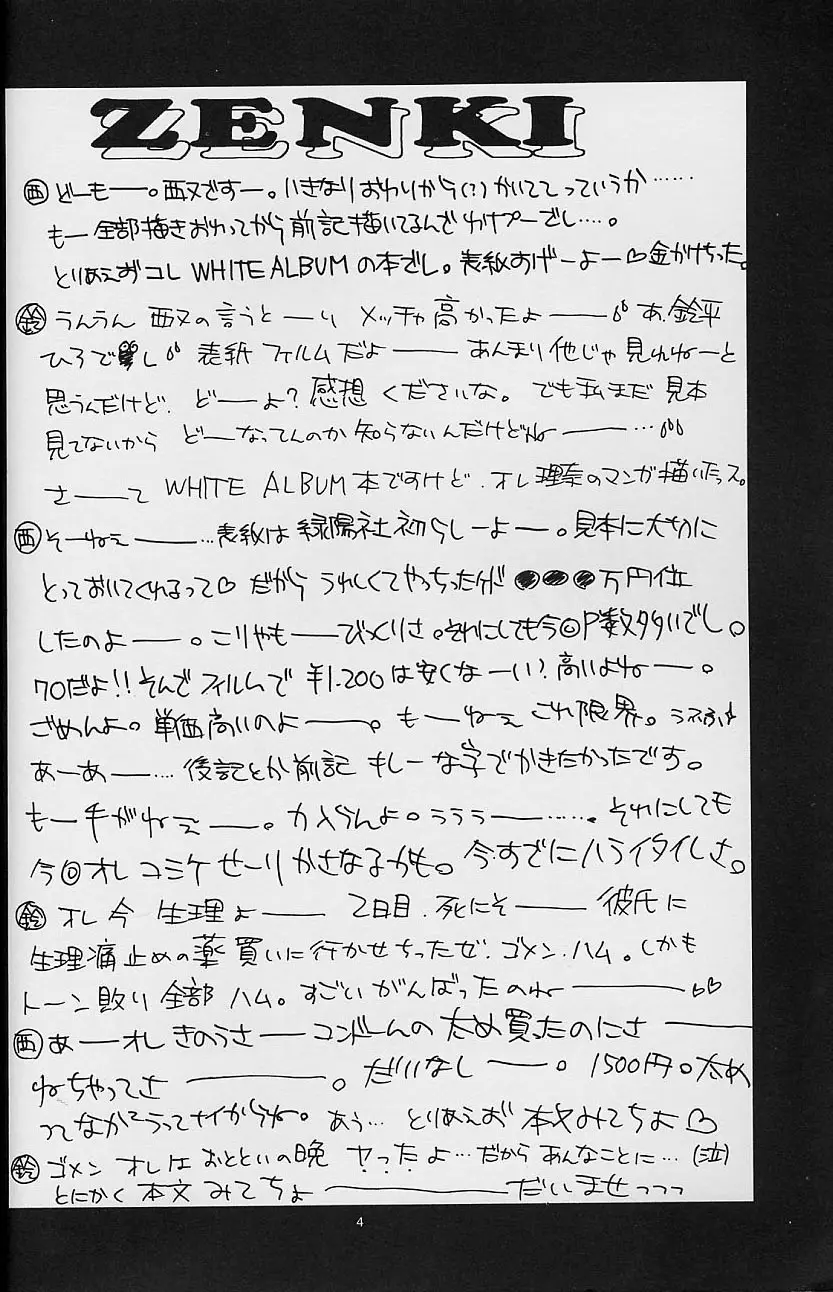 ZENKI
西 どーもー。西又ですー。いきなりおわりから(?)かいててっていうか……
もー全部描きおわってから前記描いてるんでわけプーでし…。
とりあえずコレ WHITE ALBUMの本でし。表紙すげーよー♡金かけちった。
鈴 うんうん 西又の言うとーり メッチャ高かったよー あ、鈴平
ひろでし 表紙フィルムだよー あんまり他じゃ見れねーと
思うんだけど、どーよ?感想くださいな。でも私まだ見本
見てないから どーなってんのか知らないんだけどねー…
さーて WHITE ALBUM本ですけど、オレ理奈のマンガ描いたっス。
西 そーねぇー…表紙は緑陽社初らしーよー。見本に大切に
とっておいてくれるって♡だから うれしくてやっちったけど ●●●万円位
したのよー。こりゃもーびっくりさ。それにしても今回P数多いでし。
70だよ!!そんでフィルムで ¥1.200は安くなーい?高いよねー。
ごめんよ。単価高いのよー。もーねぇ これ限界。
あーあー…後記とか前記 キレーな字でかきたかったです。
もー手がねぇー。カ入らんよ。ううぅー……. それにしても
今回オレコミケせーりかさなるかも。今すでにハライタイしさ。
鈴 オレ今 生理よー 2日目、死にそー 彼氏に
生理痛止めの薬買いに行かせちったゼ、ゴメン、ハム。しかも
トーン貼り全部ハム。すごいがんばったのねー♡♡
西 あーオレきのうさーコンドームの太め買ったのにさー
ねちゃってさー。だいなしー。1500円。太め
ってなかなかうってナイからね。あぅ… とりあえず 本文みてちょ♡
鈴 ゴメン オレはおとといの晩 ヤったよ…だからあんなことに…(泣)
とにかく 本文みてちょーだいませっっっ
4